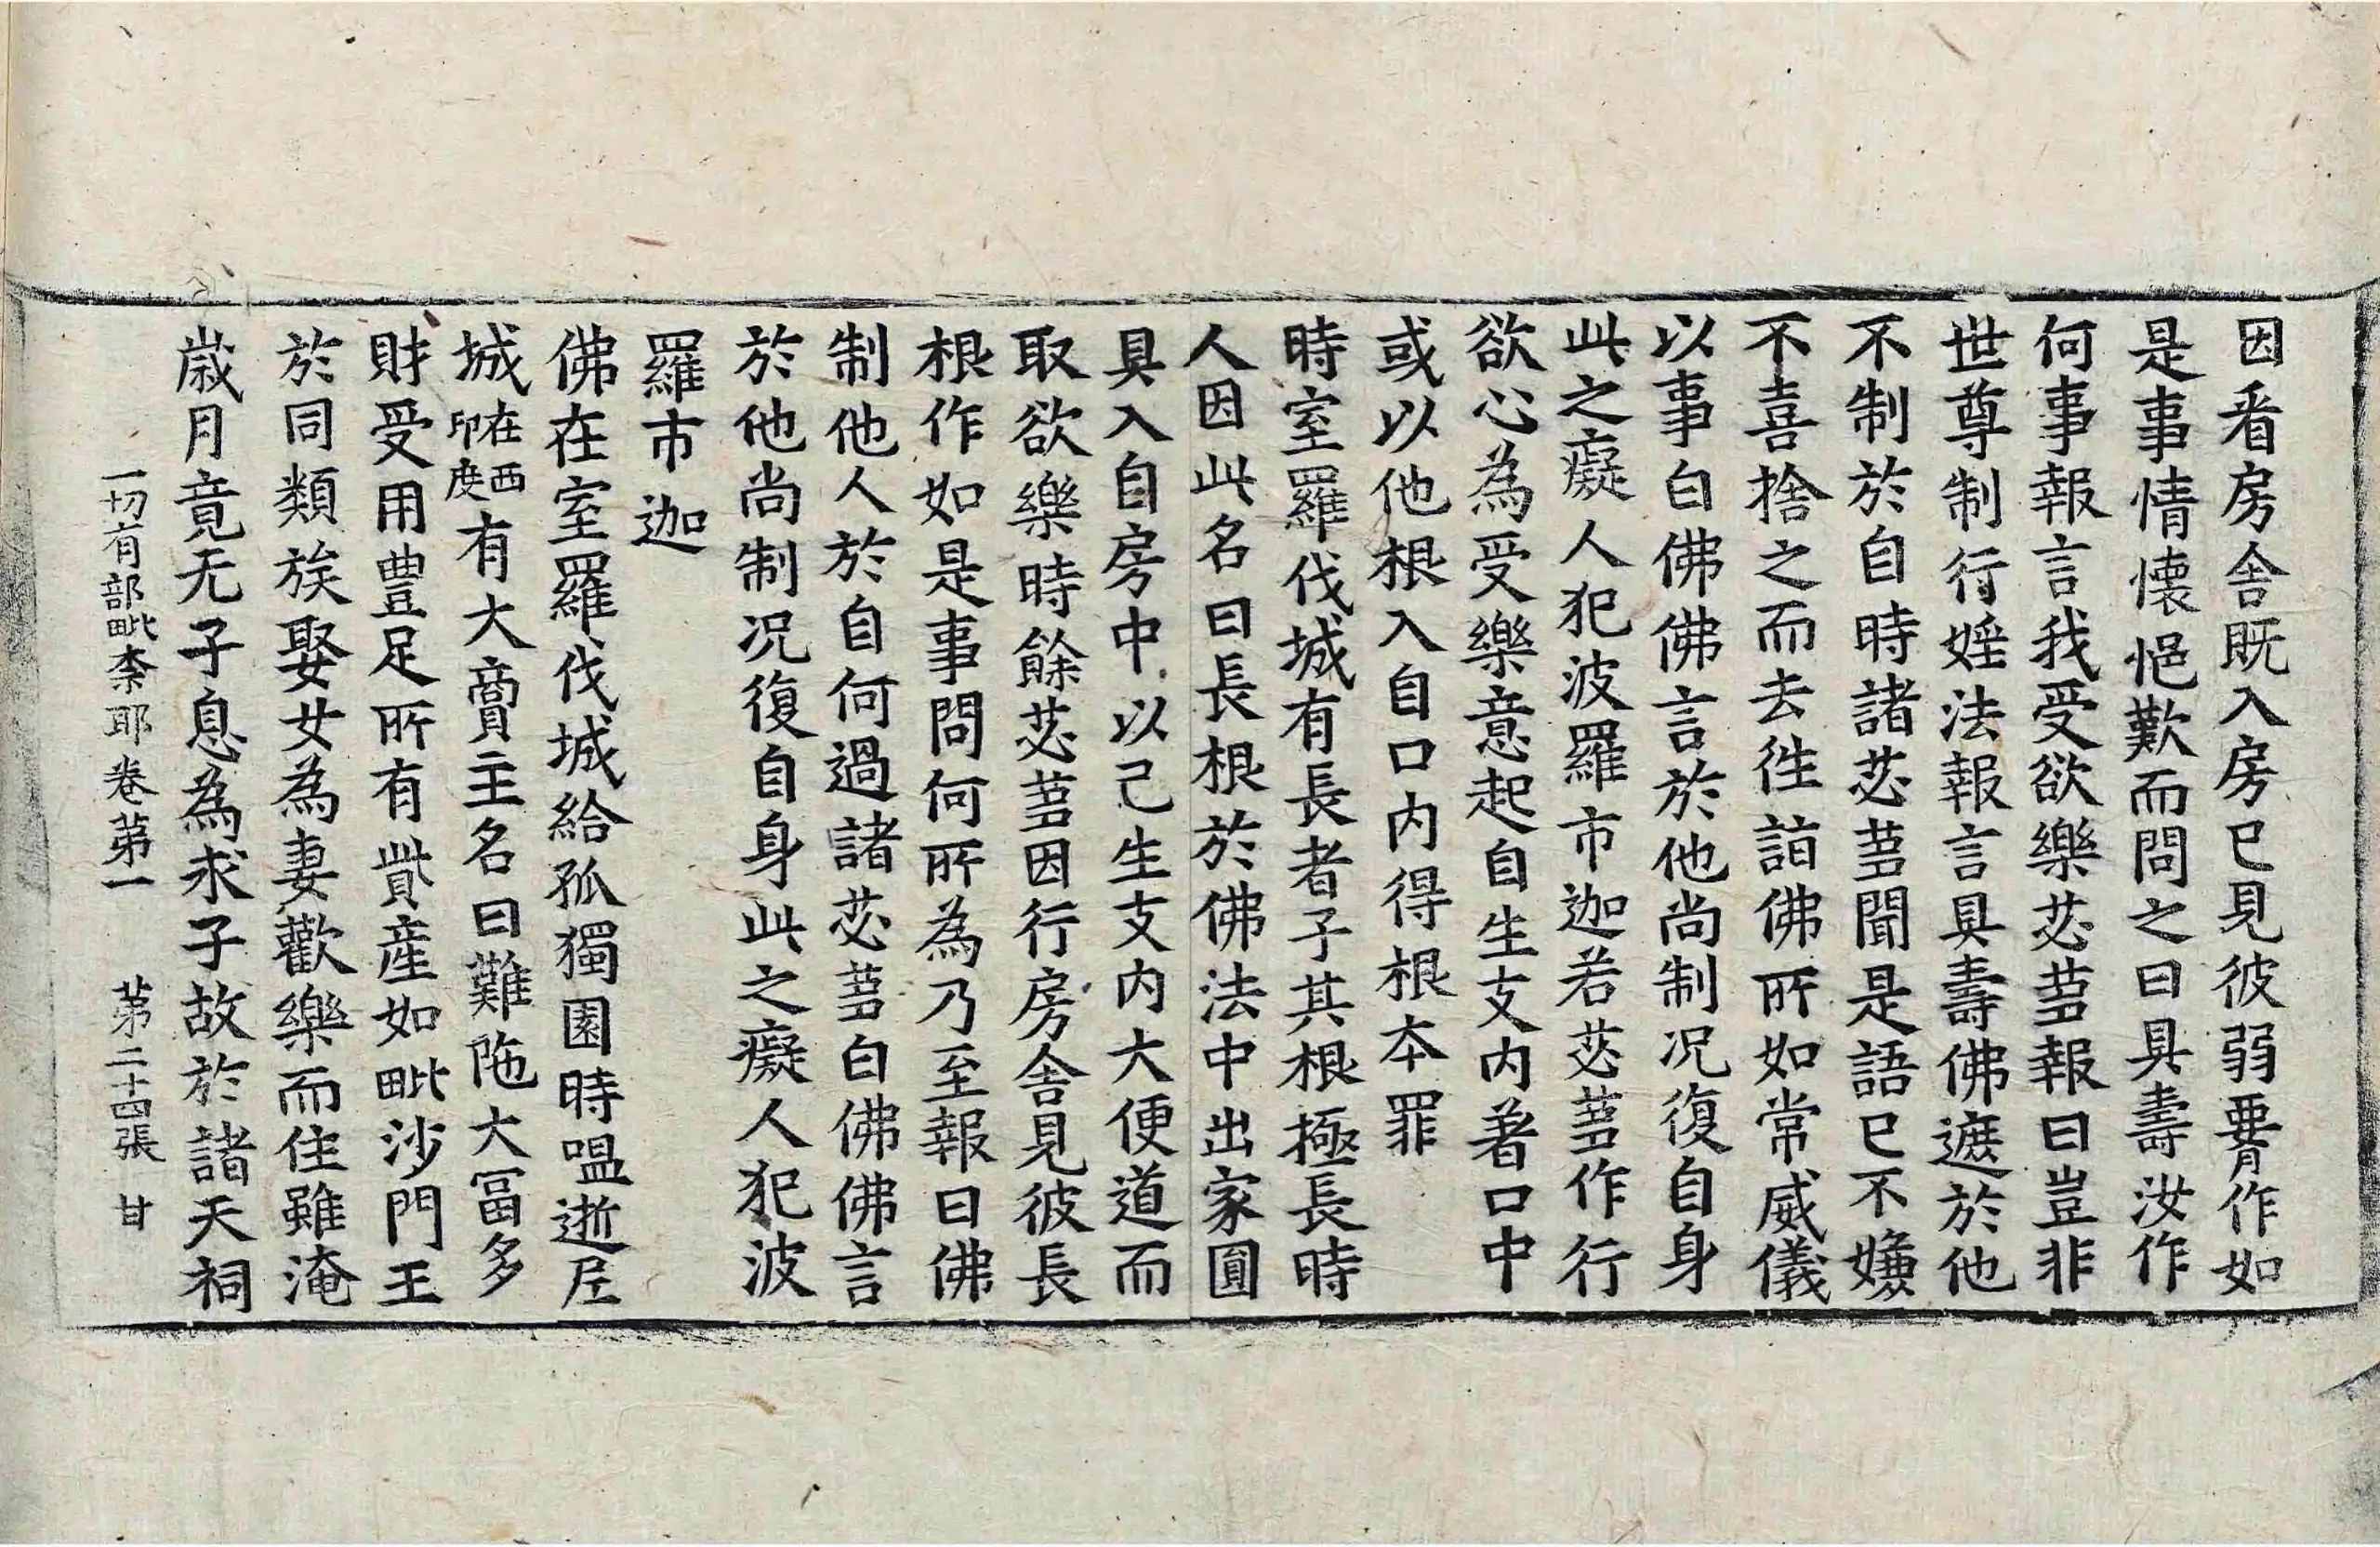 因看房舍既入房已見彼弱𦝫作如
是事情懐悒歎而問之曰具壽汝作
何事報言我受欲樂苾芻報曰豈非
世尊制行婬法報言具壽佛遮於他
不制於自時諸苾芻聞是語已不嫌
不喜捨之而去徃詣佛所如常威儀
以事白佛佛言於他尚制况復自身
此之癡人犯波羅市迦若苾芻作行
欲心為受樂意起自生支内著口中
或以他根入自口内得根本罪
時室羅伐城有長者子其根極長時
人因此名曰長根於佛法中出家圓
具入自房中以己生支内大便道而
取欲樂時餘苾芻因行房舍見彼長
根作如是事問何所為乃至報曰佛
制他人於自何過諸苾芻白佛佛言
於他尚制况復自身此之癡人犯波
羅市迦
佛在室羅伐城給孤獨園時嗢逝尼
城在西印度有大賣主名曰難陁大冨多
財受用豊足所有貲産如毗沙門王
於同類族娶女為妻歡樂而住雖淹
歳月竟无子息為求子故於諸天祠
一切有部毗柰耶卷第一 第二十四張 甘